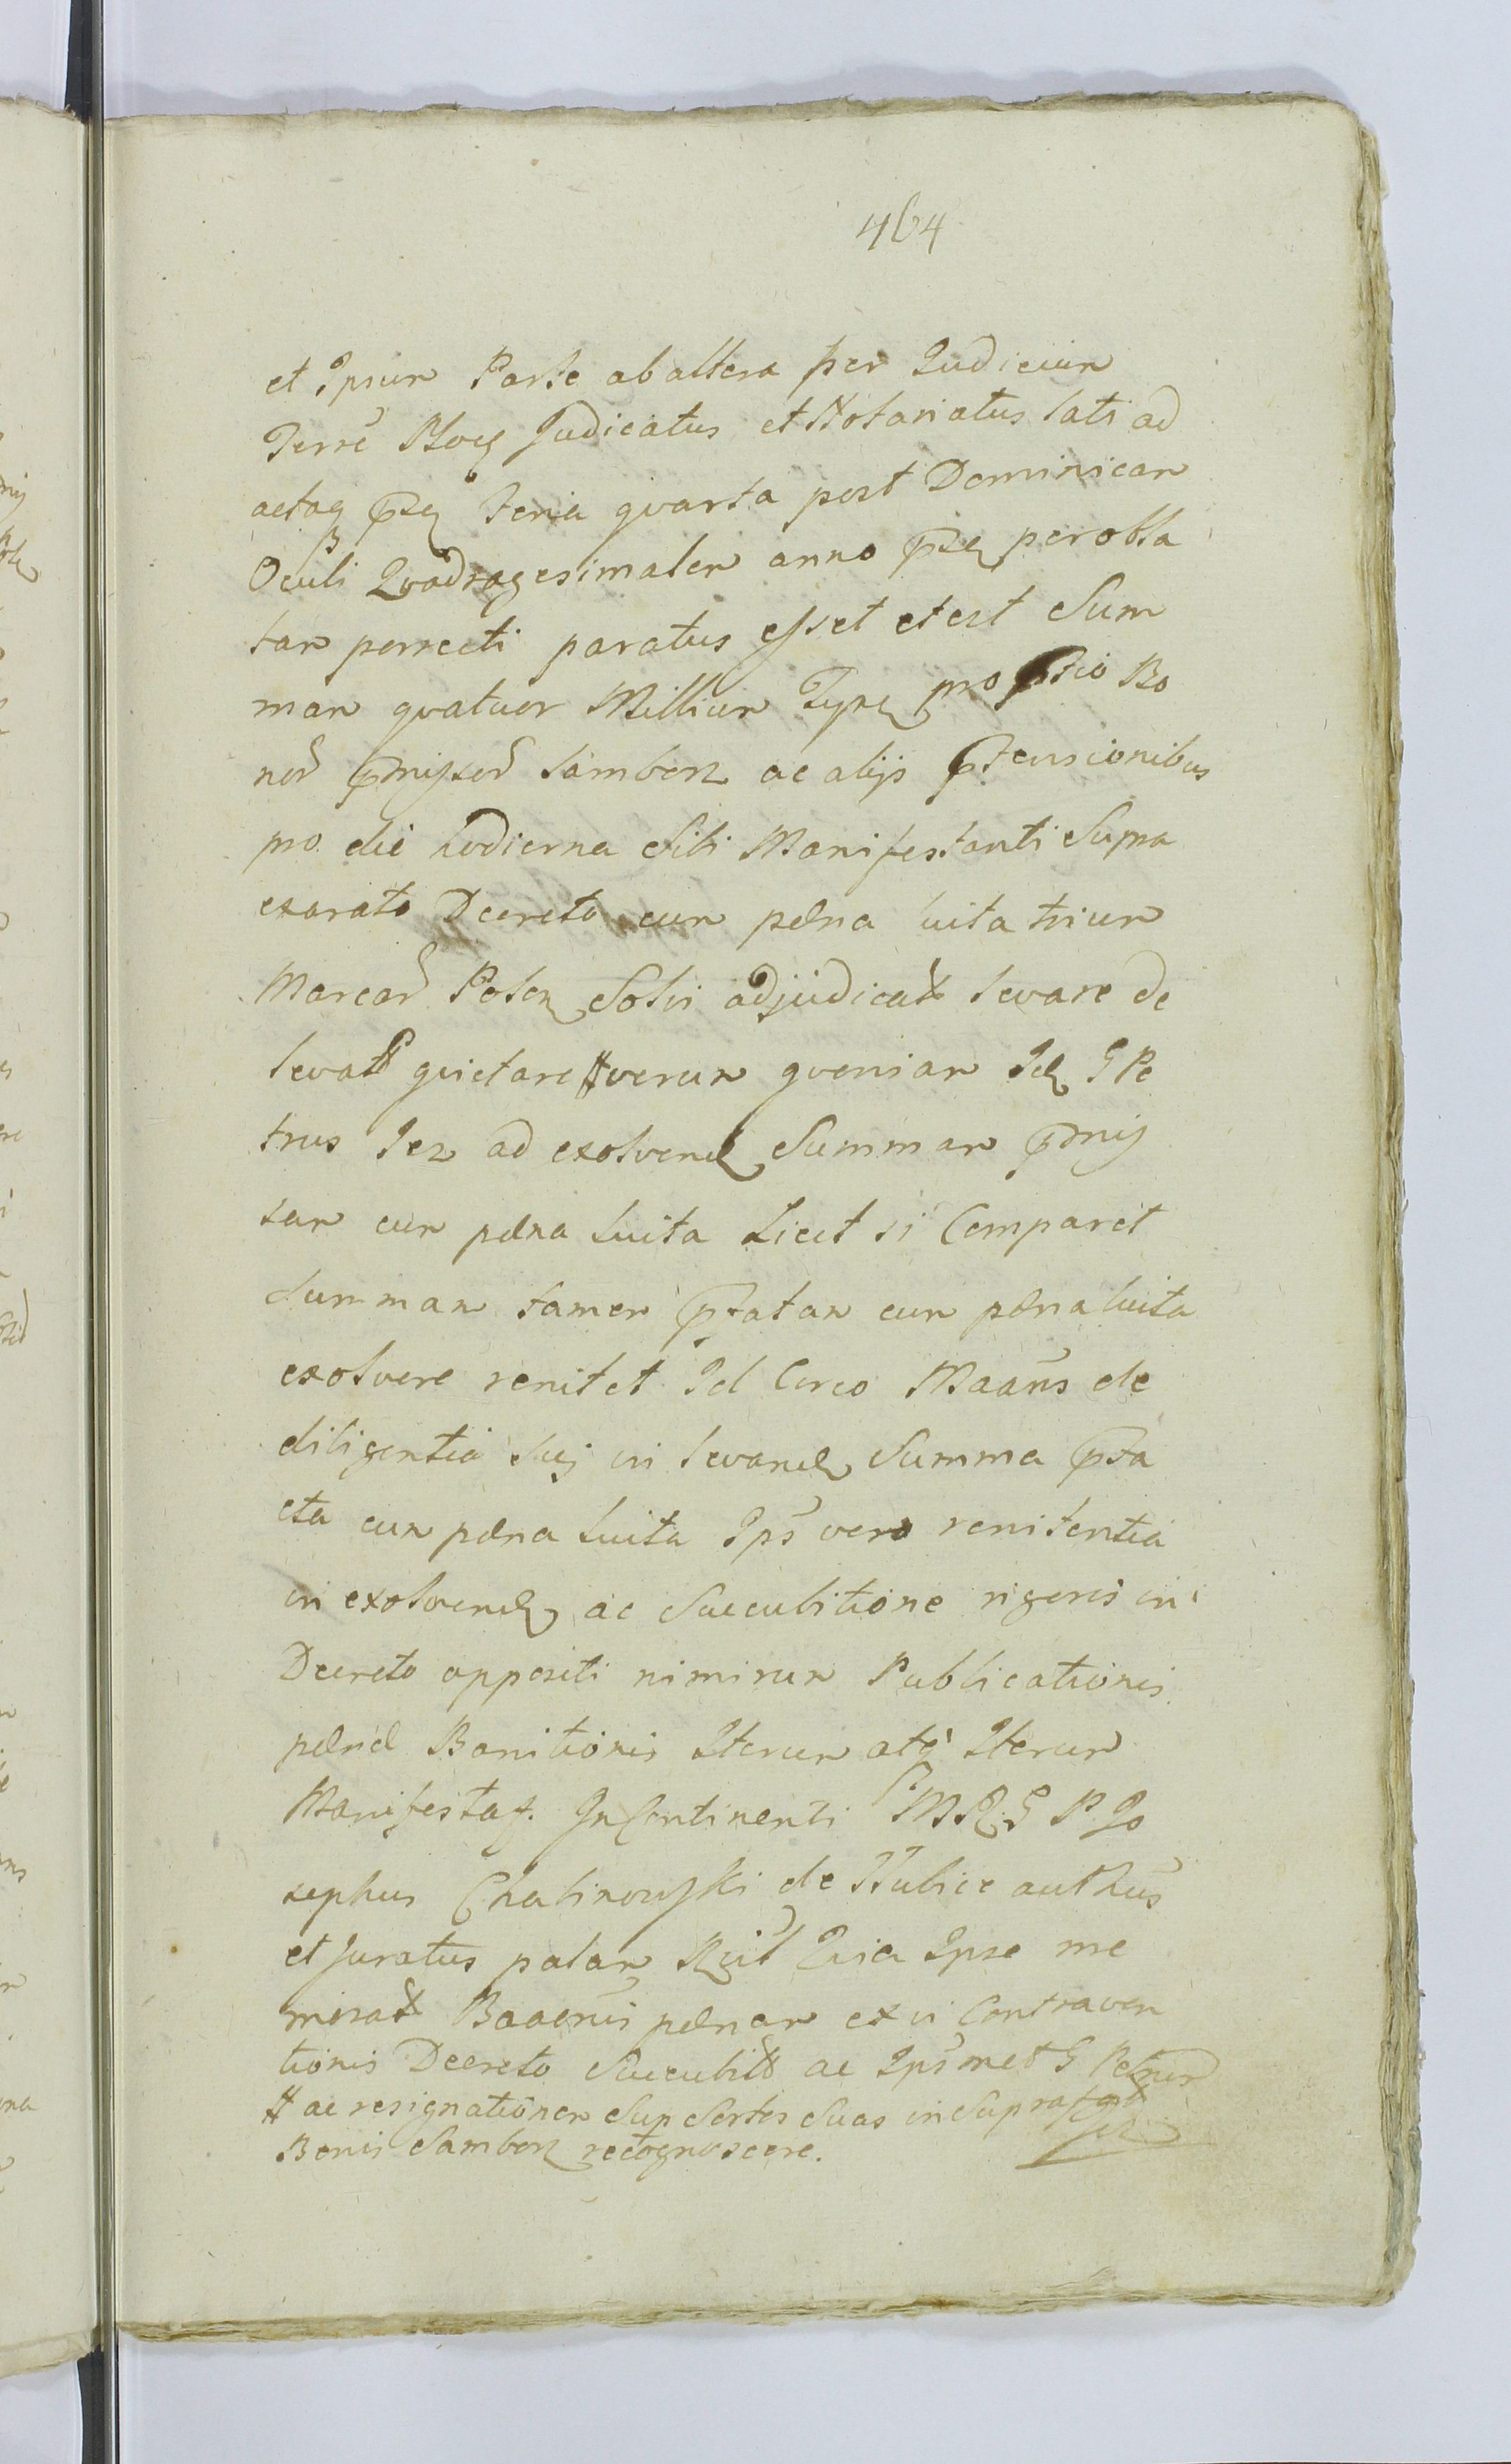 464
et Ipsum Parte ab altera per Judicium
Terrē Plocz Judicatus et Notariatus lati ad
actaq prsz feria qvarta post Dominicam
Oculi Qvadragesimalem anno prsz perobla
tam porrecti paratus esset et est Sum
mam qvatuor Millium Tynf pro
norū prmissorū Lambor ac alijs prtensionibus
pro die hodierna Sibi Manifestanti Supra
exarato Decreto cum pœna luita trium
Marcarū Polon Solvi adjudicat levare de
levat qvietare # verum qvoniam Id G Pe
trus Jez ad exolvend Summam prmis
sam cum pœna luita Licet si Comparet
Summam tamen prfatam cum pœna luita
exolvere renitet Id Circo Maañs de
diligentia Sui in levand Summa prfa
cta cum pœna luita Ips̄ vero renitentia
in exolvend ac Succubitione rigoris in
Decreto appositi nimirum Publicationis
pœnæ Banitionis Iterum atq Iterum
Manifestat. In Continenti MR: G P Jo
sephus Chalinowski de Hubice authūs
et Juratus palam Rcūt Qvia Ipse me
morat pœnam ex vi Contraven
tionis Decreto Succubit ac Ips̄met G Petrum
Jez
# ac resignationem Sup Sortes Suas in Suprafat
Bonis Lambor recognoscere.